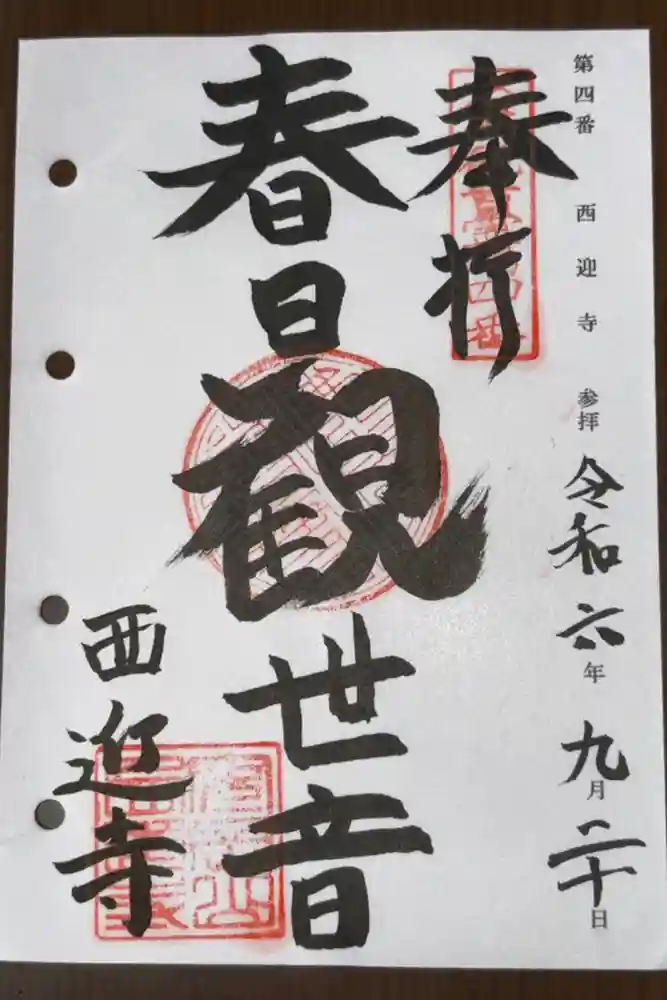 第四番 西迎寺 参拝 令和六年九月二十日
奉拝
春日観世音
西迎寺